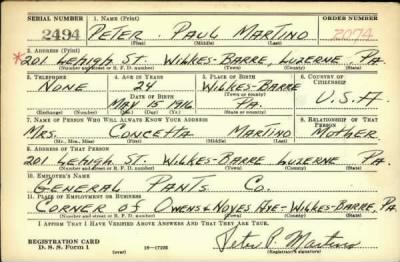 SERIAL NUMBER 1. NAME (Print) ORDER NUMBER
2494 PETER PAUL MARTINO 2074
(First) (Middle) (Last)
2. ADDRESS (Print)
*201 LEHIGH ST. WILKES-BARRE, LUZERNE, PA.
(Number and street or R. F. D. number) (Town) (County) (State)
3. TELEPHONE 4. AGE IN YEARS 5. PLACE OF BIRTH 6. COUNTRY OF CITIZENSHIP
NONE 24 WILKES-BARRE
DATE OF BIRTH (Town or county)
MAY 15 1916 PA. U.S.A.
(Exchange) (Number) (Mo.) (Day) (Yr.) (State or country)
7. NAME OF PERSON WHO WILL ALWAYS KNOW YOUR ADDRESS 8. RELATIONSHIP OF THAT PERSON
MRS. CONCETTA MARTINO MOTHER
(Mr., Mrs., Miss) (First) (Middle) (Last)
9. ADDRESS OF THAT PERSON
201 LEHIGH ST. WILKES-BARRE LUZERNE PA.
(Number and street or R. F. D. number) (Town) (County) (State)
10. EMPLOYER'S NAME
GENERAL PANTS CO.
11. PLACE OF EMPLOYMENT OR BUSINESS
CORNER OF OWENS & NOYES AVE-WILKES-BARRE, PA.
(Number and street or R. F. D. number) (Town) (County) (State)
I AFFIRM THAT I HAVE VERIFIED ABOVE ANSWERS AND THAT THEY ARE TRUE.
REGISTRATION CARD
D. S. S. Form 1 (over) 16-17105 Peter P. Martino
(Registrant's signature)